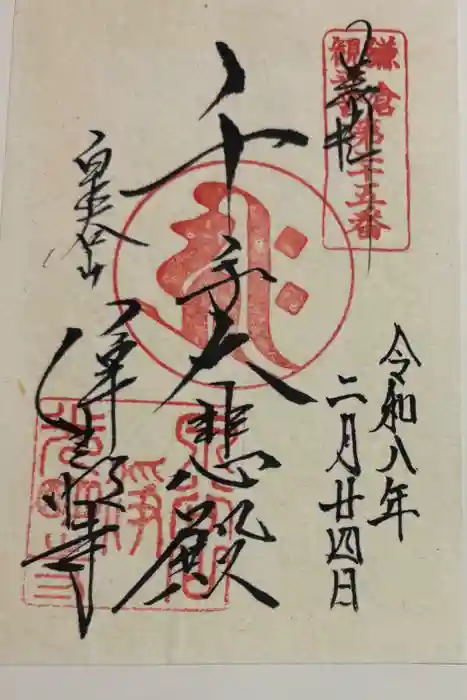 鎌倉
観音
第二十五番
奉拝
令和八年
二月廿四日
千手大悲殿
泉谷山
浄光明寺